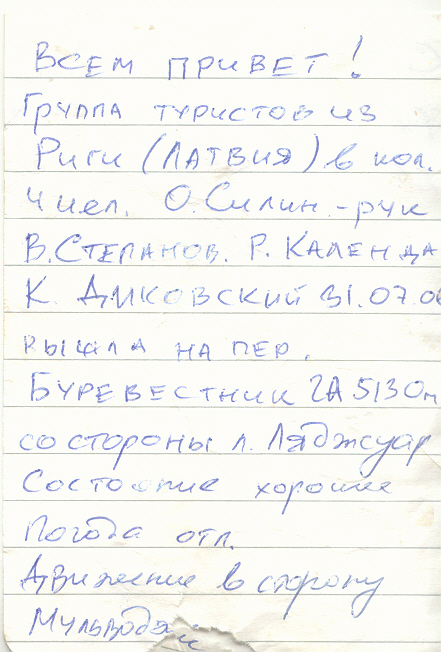 Всем привет!
Группа туристов из
Риги (Латвия) в кол.
4 чел. О. Силин - рук
В. Степанов. Р. Календа
К. Диковский 31.07.0
вышла на пер.
Буревестник 2А 5130м
со стороны л. Ляджсуар
Состояние хорошее
Погода отл.
Движение в сторону
Мульводж